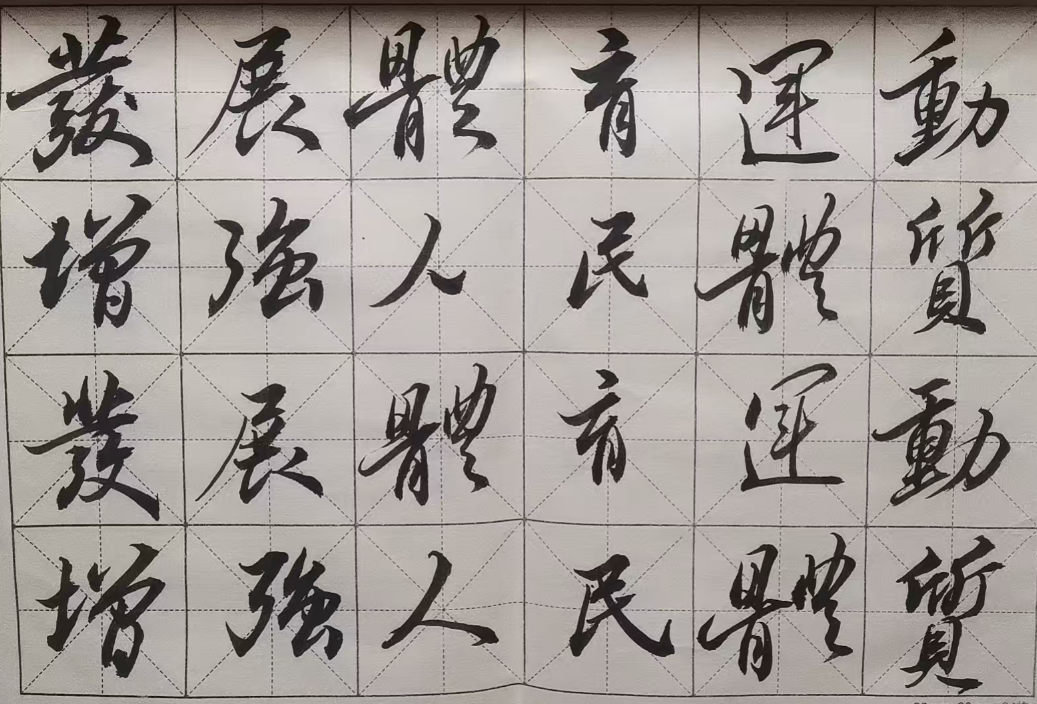 發展體育運動
增強人民體質
發展體育運動
增強人民體質